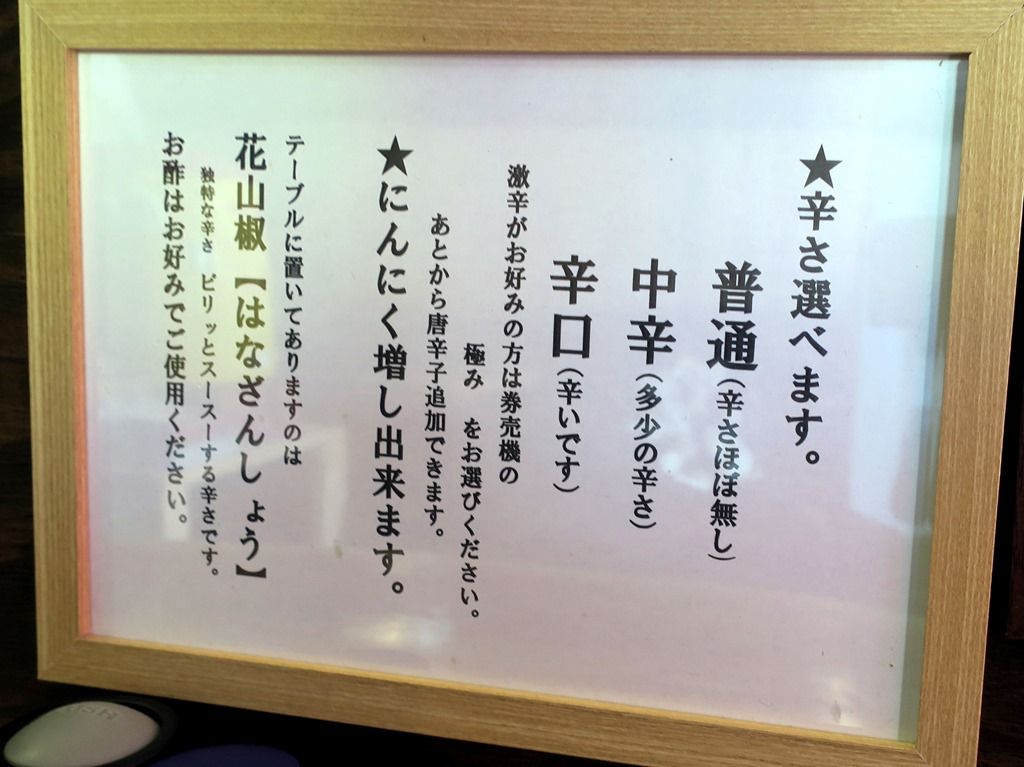 ★辛さ選べます。
普通（辛さほぼ無し）
中辛（多少の辛さ）
辛口（辛いです）
激辛がお好みの方は券売機の
極み をお選びください。
あとから唐辛子追加できます。
★にんにく増し出来ます。
テーブルに置いてありますのは
花山椒【はなざんしょう】
独特な辛さ ピリッとスースーする辛さです。
お酢はお好みでご使用ください。